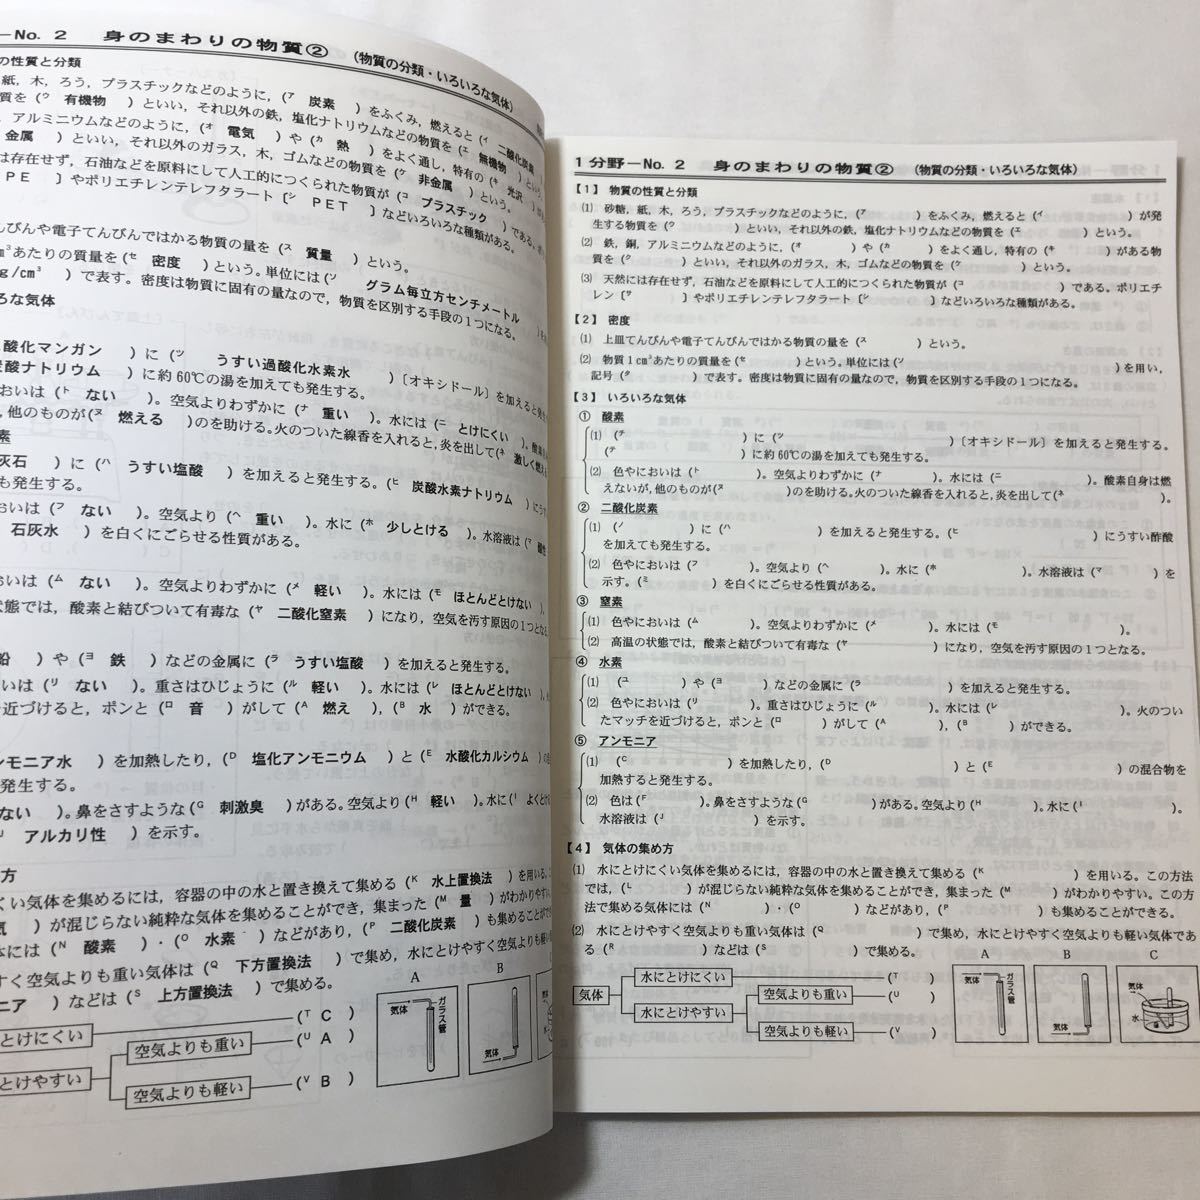 －No. 2　身のまわりの物質②　（物質の分類・いろいろな気体）
の性質と分類
紙，木，ろう，プラスチックなどのように，（ア　炭素　）をふくみ，燃えると（イ　二酸化炭素
質を（ウ　有機物　）といい，それ以外の鉄，塩化ナトリウムなどの物質を（エ　無機物　）という。
アルミニウムなどのように，（オ　電気　）や（カ　熱　）をよく通し，特有の（キ　光沢　）が
金属　）といい，それ以外のガラス，木，ゴムなどの物質を（ク　非金属　）という。
は存在せず，石油などを原料にして人工的につくられた物質が（コ　プラスチック　）である。
PE　）やポリエチレンテレフタラート（シ　PET　）などいろいろな種類がある。
んびんや電子てんびんではかる物質の量を（ス　質量　）という。
m³あたりの質量を（セ　密度　）という。単位には（ソ　グラム毎立方センチメートル
g/cm³　）で表す。密度は物質に固有の量なので，物質を区別する手段の１つになる。
ろな気体
酸化マンガン　）に（ツ　うすい過酸化水素水　）〔オキシドール〕を加えると発生
炭酸ナトリウム　）に約60℃の湯を加えても発生する。
おいは（ト　ない　）。空気よりわずかに（ナ　重い　）。水には（ニ　とけにくい　）。酸素
，他のものが（ヌ　燃える　）のを助ける。火のついた線香を入れると，炎を出して（ネ　激しく燃え
素
灰石　）に（ハ　うすい塩酸　）を加えると発生する。（ヒ　炭酸水素ナトリウム　）に
も発生する。
おいは（フ　ない　）。空気より（ヘ　重い　）。水に（ホ　少しとける　）。水溶液は（マ　酸性
石灰水　）を白くにごらせる性質がある。
おいは（ム　ない　）。空気よりわずかに（メ　軽い　）。水には（モ　ほとんどとけない　）。
状態では，酸素と結びついて有毒な（ヤ　二酸化窒素　）になり，空気を汚す原因の１つとなる
鉛　）や（ヨ　鉄　）などの金属に（ラ　うすい塩酸　）を加えると発生する。
おいは（リ　ない　）。重さはひじょうに（ル　軽い　）。水には（レ　ほとんどとけない　）。
を近づけると，ポンと（ロ　音　）がして（A　燃え　），（B　水　）ができる。
ンモニア水　）を加熱したり，（D　塩化アンモニウム　）と（E　水酸化カルシウム　）の
発生する。
ない　）。鼻をさすような（G　刺激臭　）がある。空気より（H　軽い　）。水に（I　よくとけ
J　アルカリ性　）を示す。
方
くい気体を集めるには，容器の中の水と置き換えて集める（K　水上置換法　）を用いる。
気　）が混じらない純粋な気体を集めることができ，集まった（M　量　）がわかりやすい。
体には（N　酸素　）・（O　水素　）などがあり，（P　二酸化炭素　）も集めることができる。
すく空気よりも重い気体は（Q　下方置換法　）で集め，水にとけやすく空気よりも軽い気体
ニア　）などは（S　上方置換法　）で集める。
とけにくい　（T　C　）
とけやすい　空気よりも重い　（U　A　）
空気よりも軽い　（V　B　）
A　B
気体　ガラス管　気体
１分野－No. 2　身のまわりの物質②　（物質の分類・いろいろな気体）
【１】　物質の性質と分類
⑴　砂糖，紙，木，ろう，プラスチックなどのように，（ア　　　）をふくみ，燃えると（イ　　　）が発
生する物質を（ウ　　　）といい，それ以外の鉄，塩化ナトリウムなどの物質を（エ　　　）という。
⑵　鉄，銅，アルミニウムなどのように，（オ　　　）や（カ　　　）をよく通し，特有の（キ　　　）がある物
質を（ク　　　）といい，それ以外のガラス，木，ゴムなどの物質を（ケ　　　）という。
⑶　天然には存在せず，石油などを原料にして人工的につくられた物質が（コ　　　）である。ポリエチ
レン〔サ　　　〕やポリエチレンテレフタラート〔シ　　　〕などいろいろな種類がある。
【２】　密度
⑴　上皿てんびんや電子てんびんではかる物質の量を（ス　　　）という。
⑵　物質１cm³あたりの質量を（セ　　　）という。単位には（ソ　　　）を用い，
記号（タ　　　）で表す。密度は物質に固有の量なので，物質を区別する手段の１つになる。
【３】　いろいろな気体
①　酸素
⑴　（チ　　　）に（ツ　　　）〔オキシドール〕を加えると発生する。
（テ　　　）に約60℃の湯を加えても発生する。
⑵　色やにおいは（ト　　　）。空気よりわずかに（ナ　　　）。水には（ニ　　　）。酸素自身は燃
えないが，他のものが（ヌ　　　）のを助ける。火のついた線香を入れると，炎を出して（ネ　　　）。
②　二酸化炭素
⑴　（ノ　　　）に（ハ　　　）を加えると発生する。（ヒ　　　）にうすい酢酸
を加えても発生する。
⑵　色やにおいは（フ　　　）。空気より（ヘ　　　）。水に（ホ　　　）。水溶液は（マ　　　）を
示す。（ミ　　　）を白くにごらせる性質がある。
③　窒素
⑴　色やにおいは（ム　　　）。空気よりわずかに（メ　　　）。水には（モ　　　）。
⑵　高温の状態では，酸素と結びついて有毒な（ヤ　　　）になり，空気を汚す原因の１つとなる。
④　水素
⑴　（ユ　　　）や（ヨ　　　）などの金属に（ラ　　　）を加えると発生する。
⑵　色やにおいは（リ　　　）。重さはひじょうに（ル　　　）。水には（レ　　　）。火のつい
たマッチを近づけると，ポンと（ロ　　　）がして（A　　　），（B　　　）ができる。
⑤　アンモニア
⑴　（C　　　）を加熱したり，（D　　　）と（E　　　）の混合物を
加熱すると発生する。
⑵　色は（F　　　）。鼻をさすような（G　　　）がある。空気より（H　　　）。水に（I　　　）。
水溶液は（J　　　）を示す。
【４】　気体の集め方
⑴　水にとけにくい気体を集めるには，容器の中の水と置き換えて集める（K　　　）を用いる。この方法
では，（L　　　）が混じらない純粋な気体を集めることができ，集まった（M　　　）がわかりやすい。この方
法で集める気体には（N　　　）・（O　　　）などがあり，（P　　　）も集めることができる。
⑵　水にとけやすく空気よりも重い気体は（Q　　　）で集め，水にとけやすく空気よりも軽い気体であ
る（R　　　）などは（S　　　）で集める。
気体　水にとけにくい　（T　　　）
水にとけやすい　空気よりも重い　（U　　　）
空気よりも軽い　（V　　　）
A　B　C
気体　ガラス管　気体　気体　水